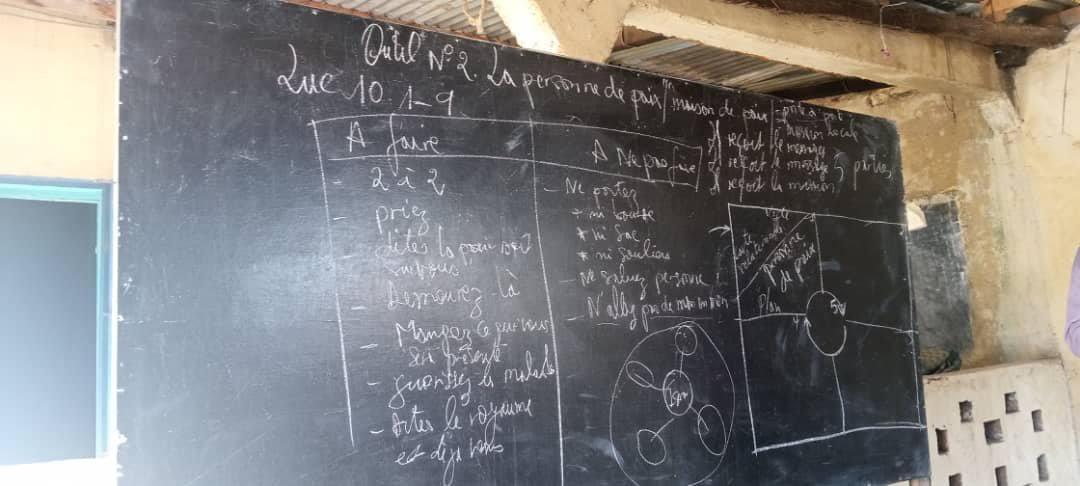 Outil N° 2. La personne de paix / maison de paix
Luc 10 1-9
A faire
- 2 à 2
- priez
- dites la paix soit
sur vous
- Demeurez là
- Mangez ce qui vous
est présenté
- guerissez les malades
- dites le royaume
est déjà venu
A Ne pas faire
- Ne portez
* ni bourse
* ni sac
* ni souliers
- Ne saluez personne
- N'allez pas de maison en maison
- porte à porte
Il reçoit le
Il reçoit le message
Il reçoit la mission
5 parties
personne
de paix
Plan
4